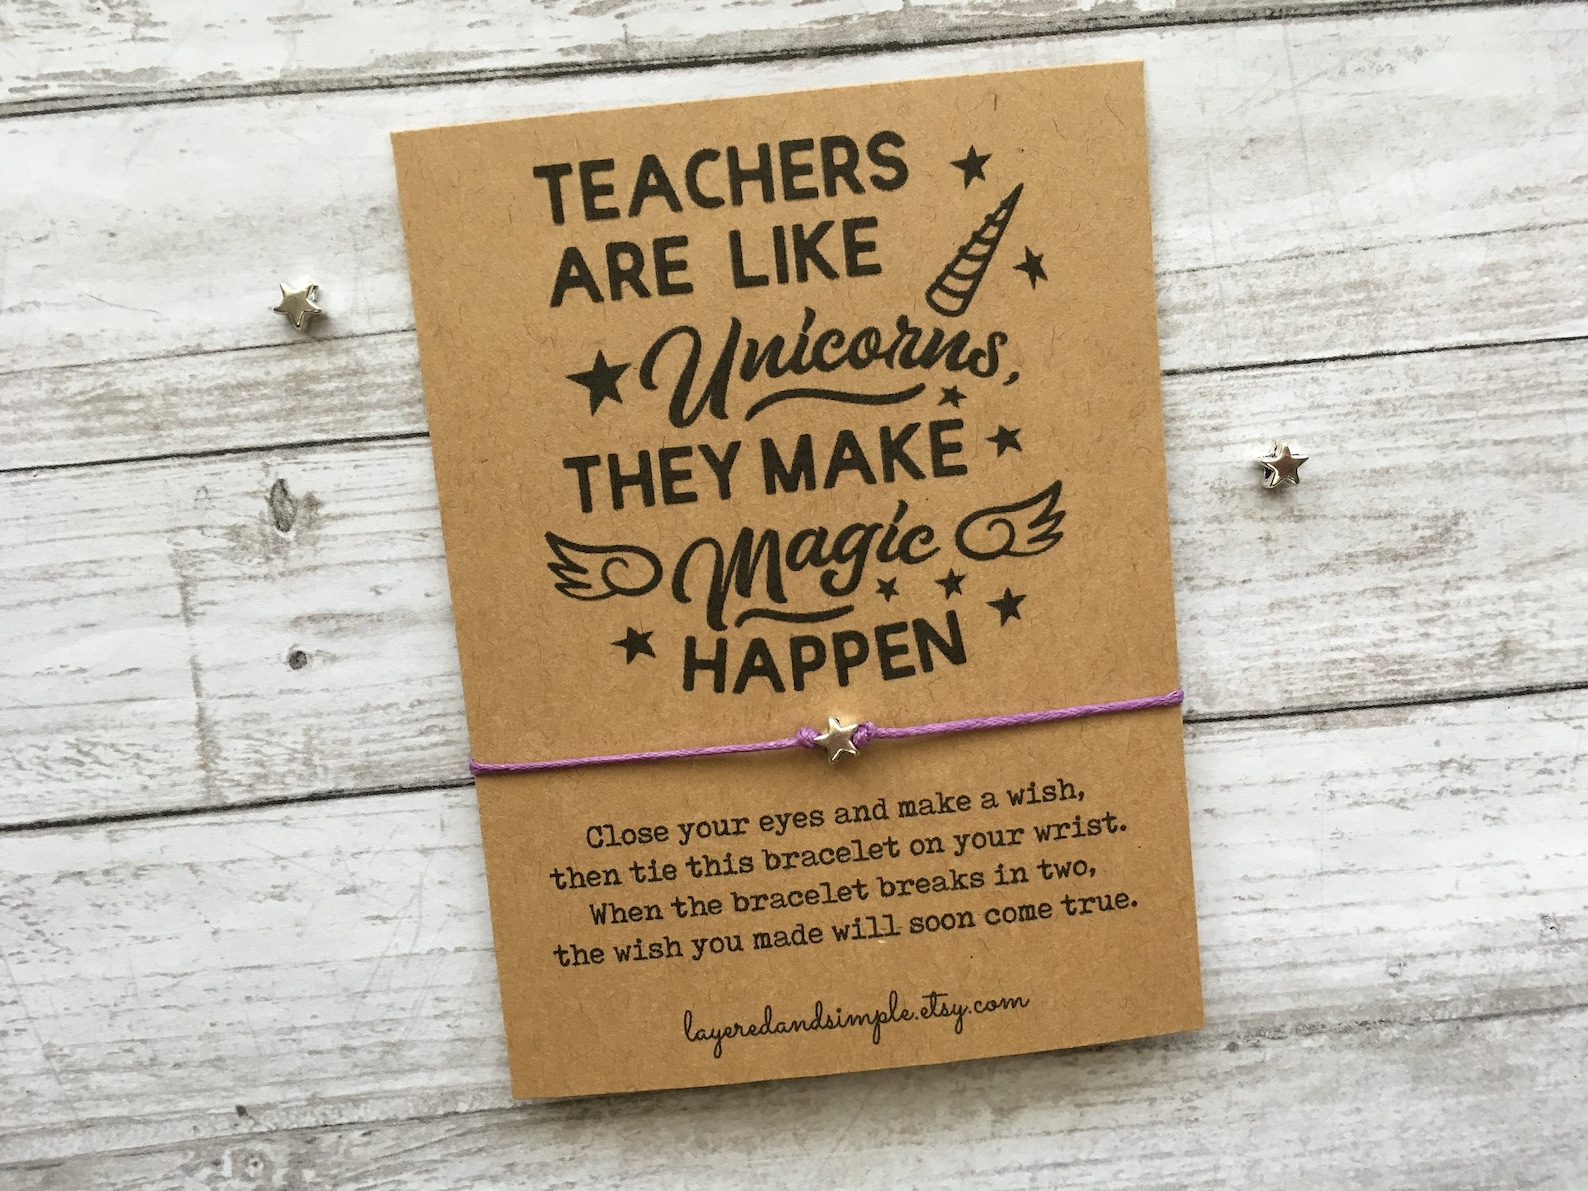 TEACHERS
ARE LIKE
Unicorns,
THEY MAKE
Magic
HAPPEN
Close your eyes and make a wish,
then tie this bracelet on your wrist.
When the bracelet breaks in two,
the wish you made will soon come true.
layeredandsimple.etsy.com